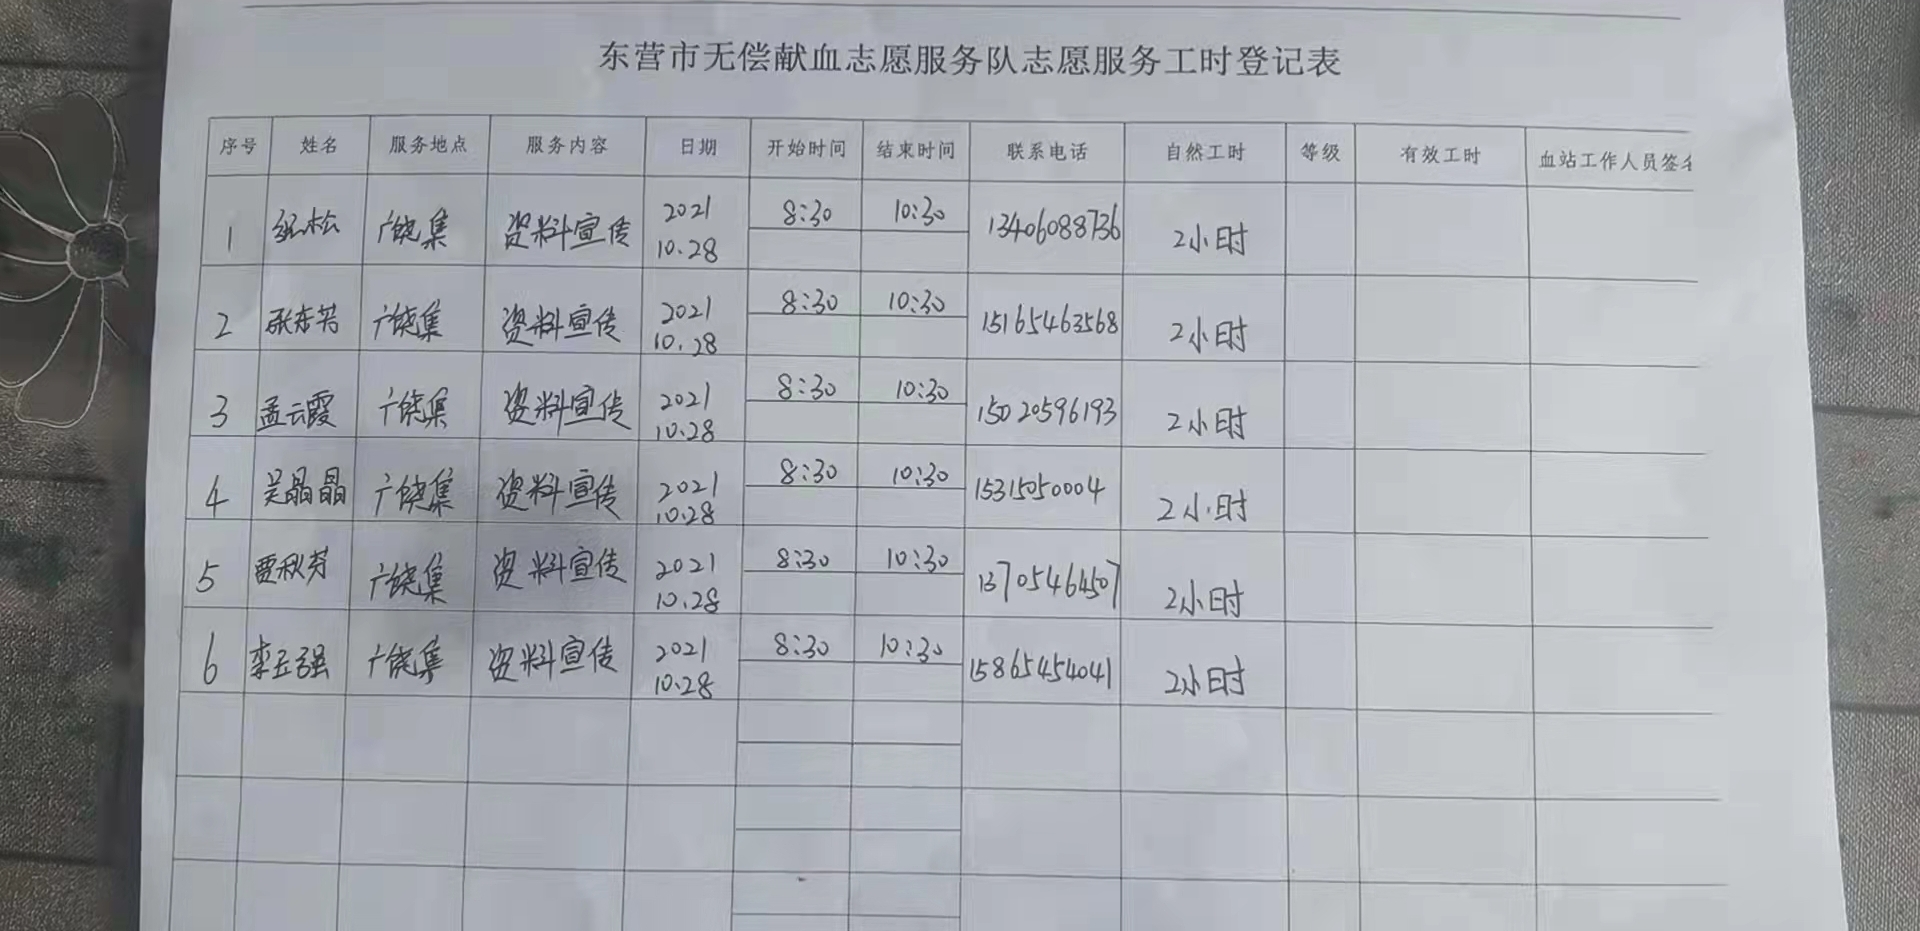 东营市无偿献血志愿服务队志愿服务工时登记表
序号 姓名 服务地点 服务内容 日期 开始时间 结束时间 联系电话 自然工时 等级 有效工时 血站工作人员签名
1 松 广饶集 资料宣传 2021 10.28 8:30 10:30 13406088736 2小时
2 张东芳 广饶集 资料宣传 2021 10.28 8:30 10:30 15165463568 2小时
3 孟云霞 广饶集 资料宣传 2021 10.28 8:30 10:30 15020596193 2小时
4 吴晶晶 广饶集 资料宣传 2021 10.28 8:30 10:30 15315050004 2小时
5 贾秋芳 广饶集 资料宣传 2021 10.28 8:30 10:30 13705464507 2小时
6 李玉强 广饶集 资料宣传 2021 10.28 8:30 10:30 15865454041 2小时